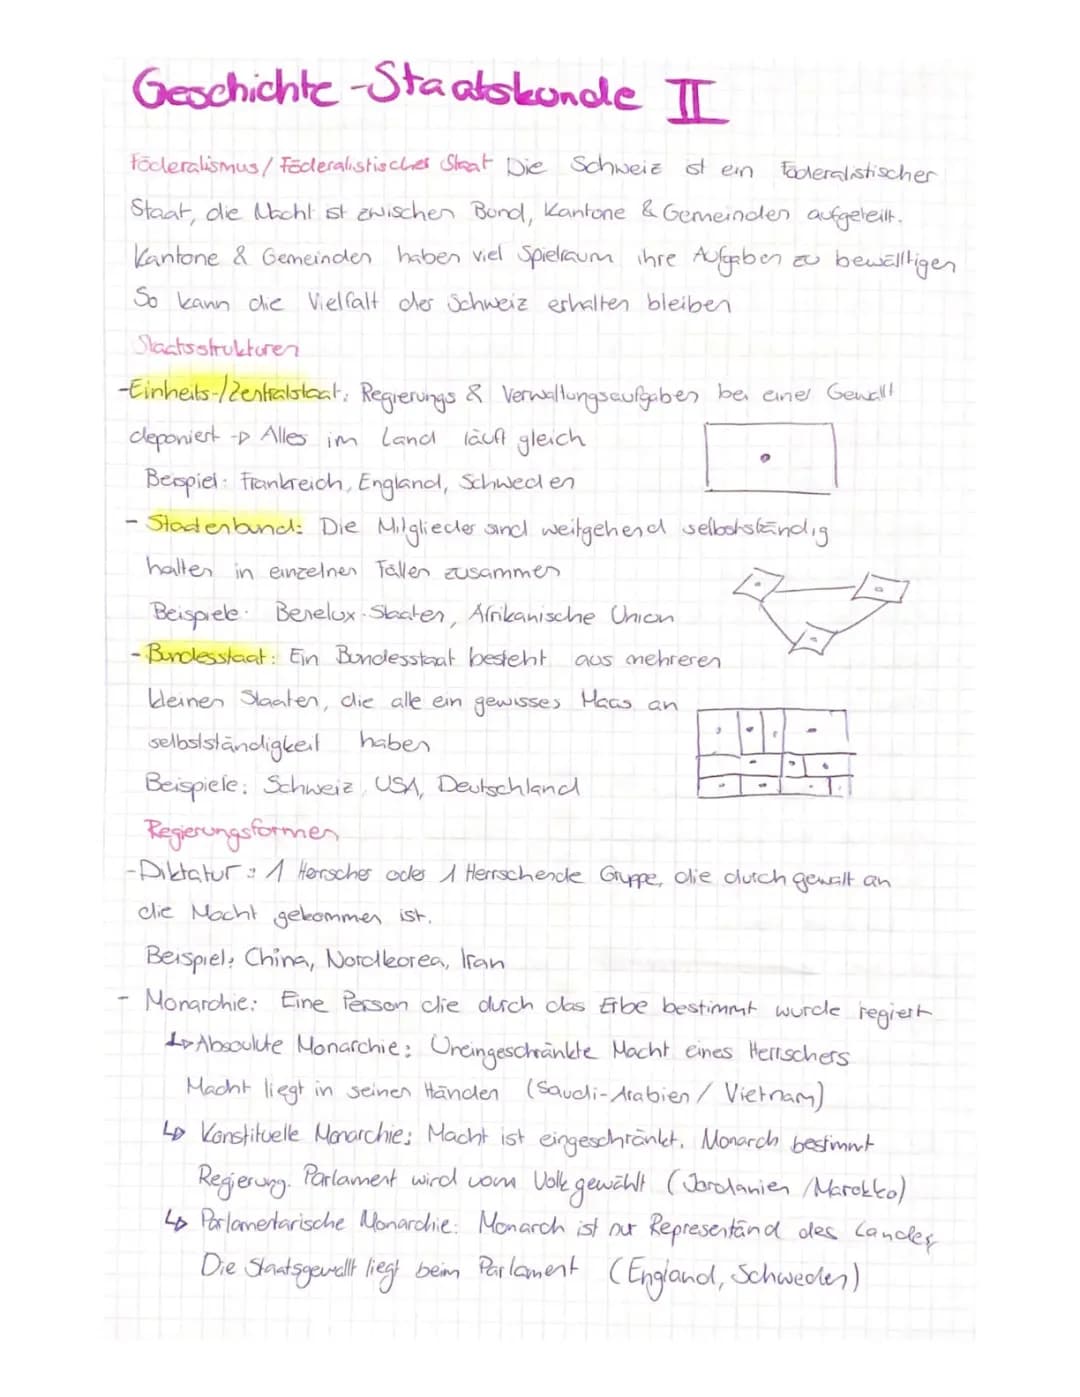 Geschichte - Staatskunde II
Föderalismus / Föderalistischer Staat Die Schweiz ist ein Föderalistischer
Staat, die Macht ist zwischen Bund, Kantone & Gemeinden aufgeteilt.
Kantone & Gemeinden haben viel Spielraum ihre Aufgaben zu bewälltigen
So kann die Vielfalt der Schweiz erhalten bleiben
Staatsstrukturen
-Einheits-/Zentralstaat: Regierungs & Verwaltungsaufgaben bei einer Gewallt
deponiert -> Alles im Land läuft gleich
Beispiel: Frankreich, England, Schweden
- Staatenbund: Die Mitglieder sind weitgehend selbstständig
halten in einzelnen Fällen zusammen
Beispiele: Benelux-Staaten, Afrikanische Union
- Bundesstaat: Ein Bundesstaat besteht aus mehreren
kleinen Staaten, die alle ein gewisses Maas an
selbstständigkeit haben
Beispiele: Schweiz, USA, Deutschland
Regierungsformen
-Diktatur: 1 Herscher oder 1 Herrschende Gruppe, die durch gewalt an
die Macht gekommen ist.
Beispiel: China, Nordkorea, Iran
- Monarchie: Eine Person die durch das Erbe bestimmt wurde regiert
↳ Absoulute Monarchie: Uneingeschränkte Macht eines Herrschers
Macht liegt in seinen Händen (Saudi-Arabien / Vietnam)
↳ Konstituelle Monarchie: Macht ist eingeschränkt. Monarch bestimmt
Regierung. Parlament wird vom Volk gewählt (Jordanien / Marokko)
↳ Parlamentarische Monarchie: Monarch ist nur Representänd des Landes
Die Staatsgewallt liegt beim Parlament (England, Schweden)